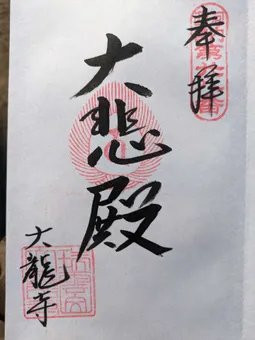 奉拝
大悲殿
大龍寺